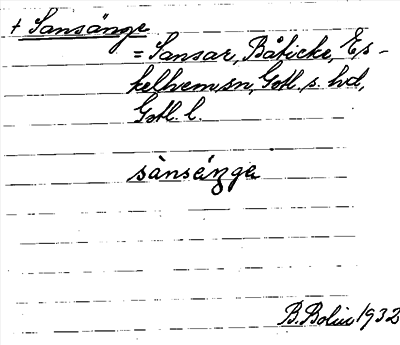 + Sansänge
= Sansar, Båticke, Es-
kelhem sn, Gotl. s. hd,
Gotl. l.
sànséŋge
B. Bolin 1932